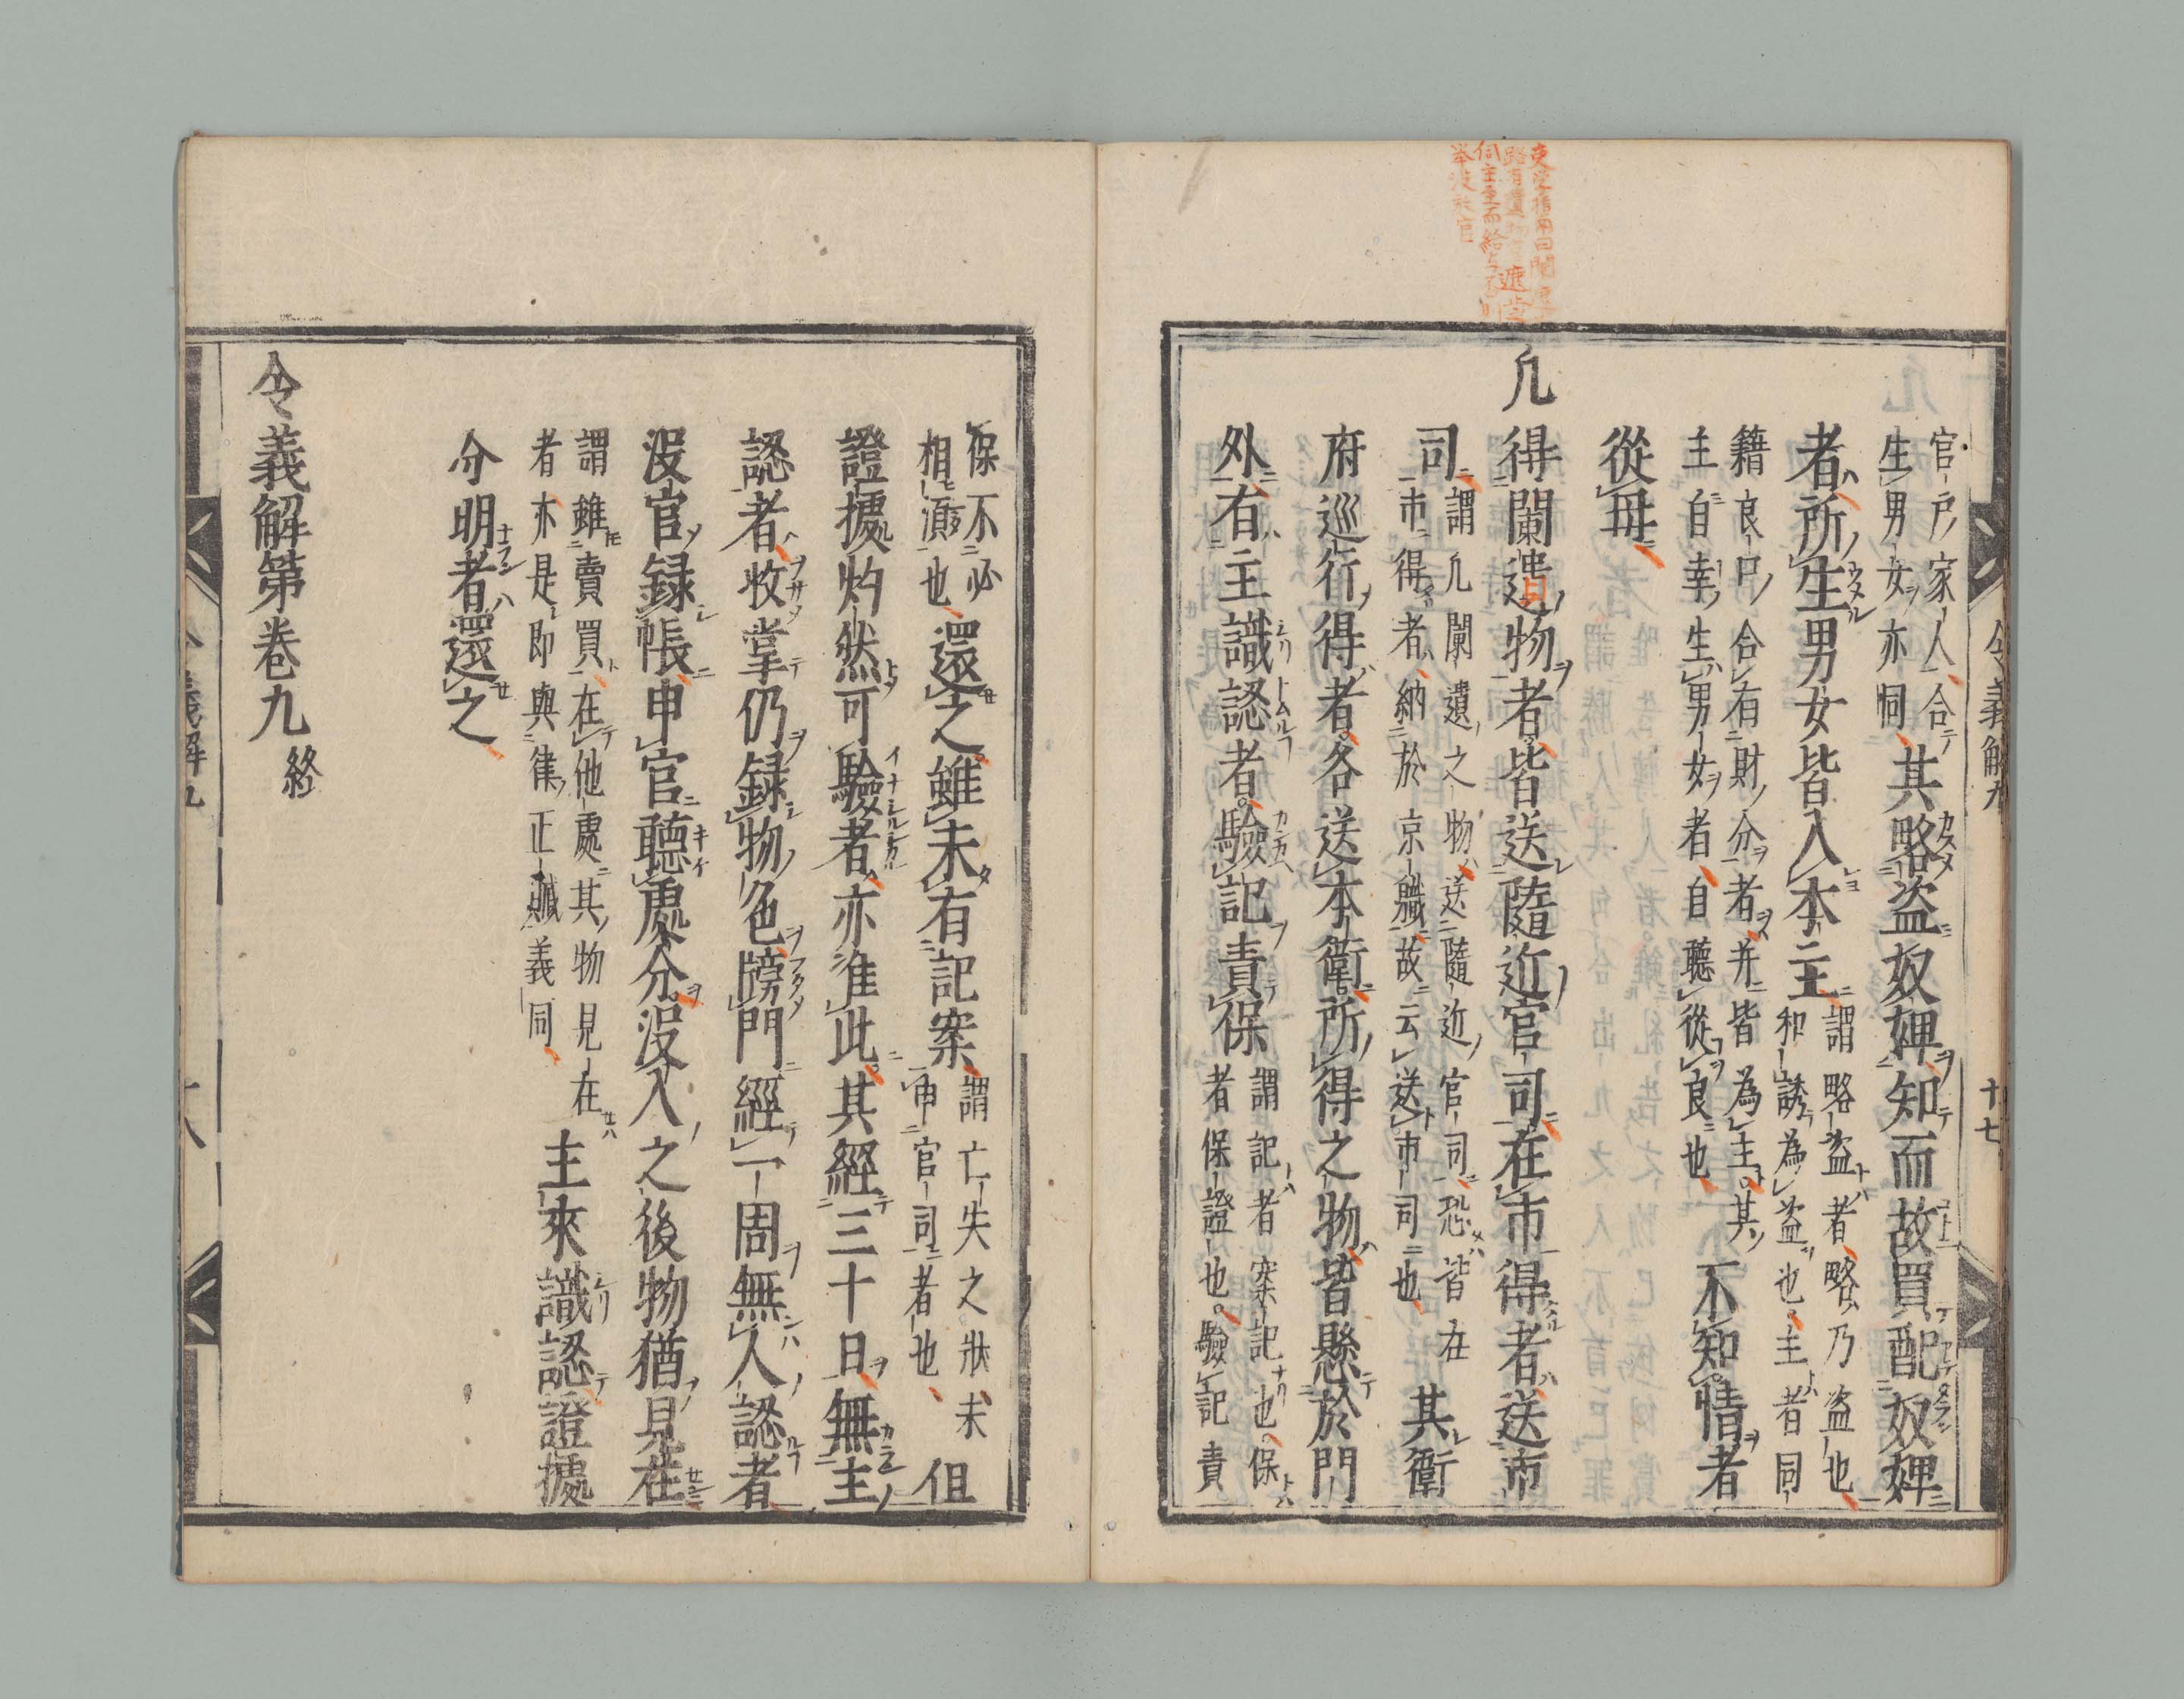 官戸家人合
生男女亦同
其略盗奴婢知而故買配奴婢
者所生男女皆入本主
謂略盗者略乃盗也
和誘為盗也主者同
籍良口合有財分者并皆為主其
主自幸生男女者自聴従良也
不知情者
從母
凢得闌遺物者皆送隨近官司在市得者送市
司
謂凢闌遺之物送隨近官司恐皆在
市得者納於京職故云送市司也
其衛
府巡行得者各送本衛所得之物皆懸於門
外有主識認者驗記責保
謂記者案記也保
者保證也驗記責
令義解九
十七
保不必
相須也
還之雖未有記案
謂亡失之狀未
申官司者也
但
證據灼然可驗者亦准此其經三十日無主
認者收掌仍録物色牓門經一周無人認者
没官録帳申官聽處分没入之後物猶見在
謂雖賣買在他處其物見在
者亦是即與律正贓義同
主來識認證據
分明者還之
令義解第卷九 終